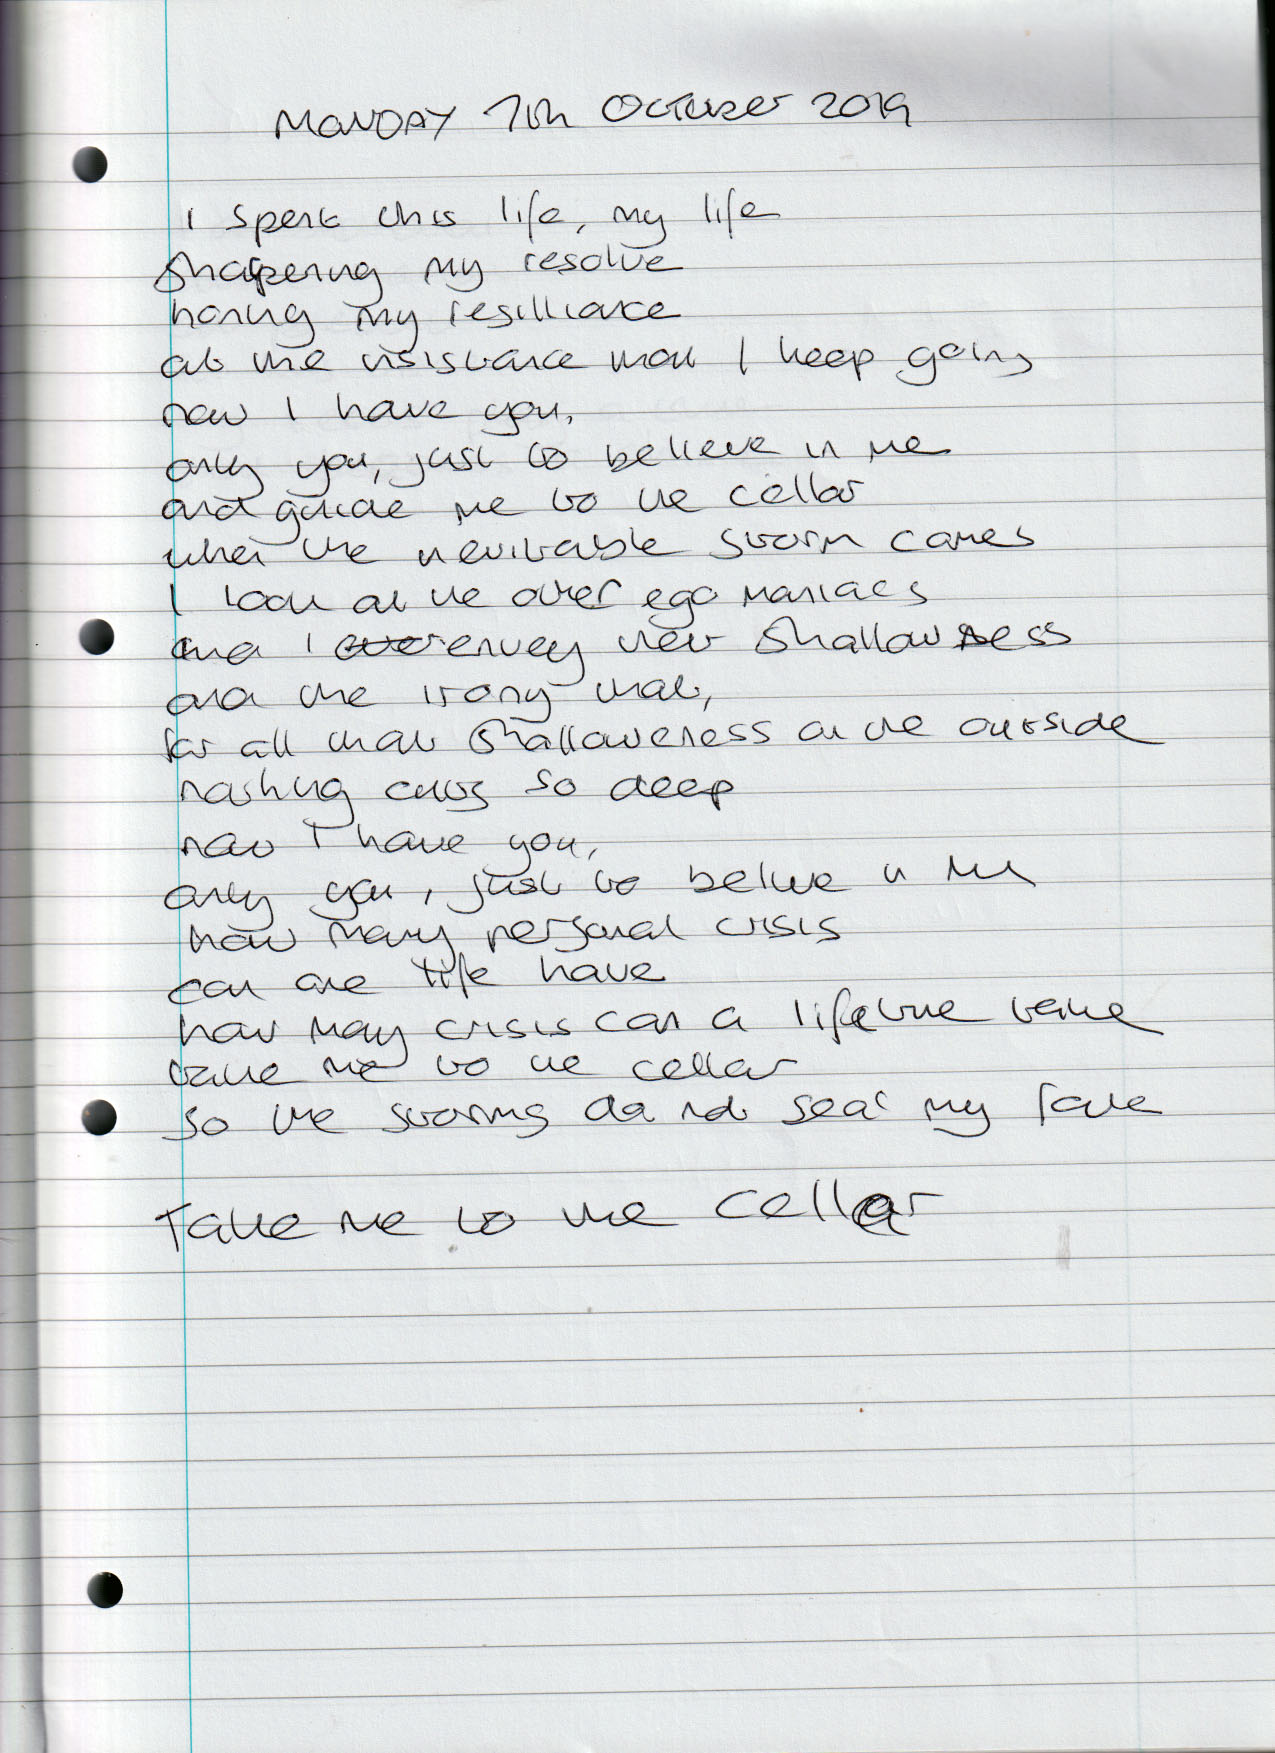 MONDAY 7th October 2019
I spent this life, my life
sharpening my resolve
honing my resilliance
at the resistance that I keep going
now I have you,
only you, just to believe in me
and guide me to the cellar
when the inevitable storm comes
I look at the other ego maniacs
and I envey their shallowness
and the irony that,
for all that shallowness on the outside
nothing cuts so deep
now I have you,
only you, just to believe in me
how many personal crisis
can one life have
how many crisis can a lifetime take
take me to the cellar
so the storms do not seal my fate
Take me to the cellar